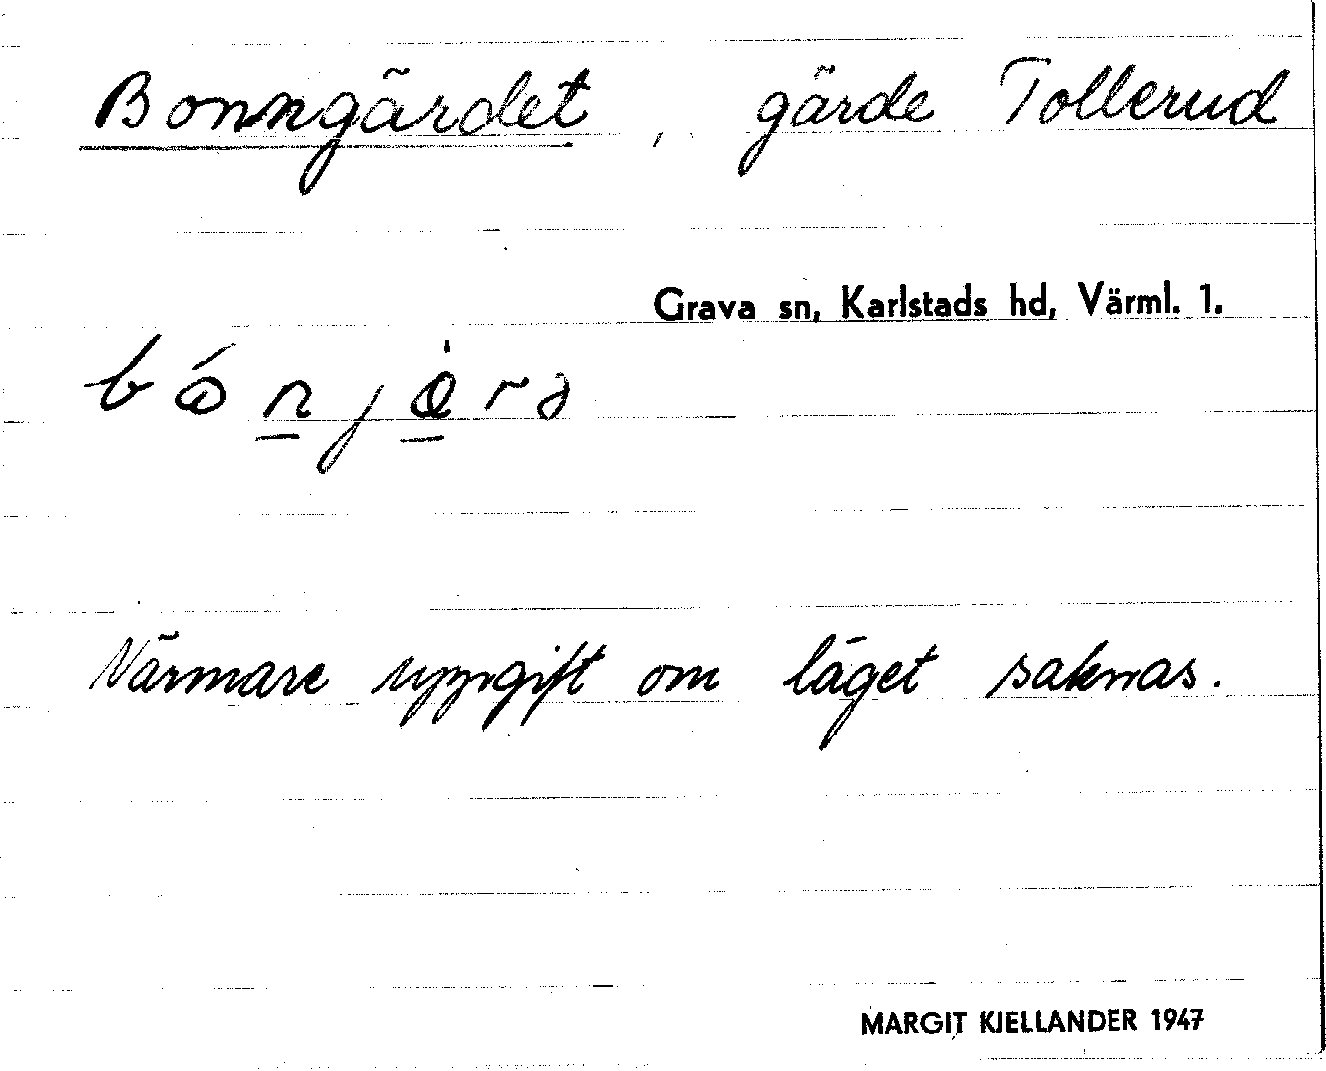 Bonngärdet, gärde Tollerud
Grava sn, Karlstads hd, Värml. 1.
Närmare uppgift om läget saknas.
MARGIT KJELLANDER 1947